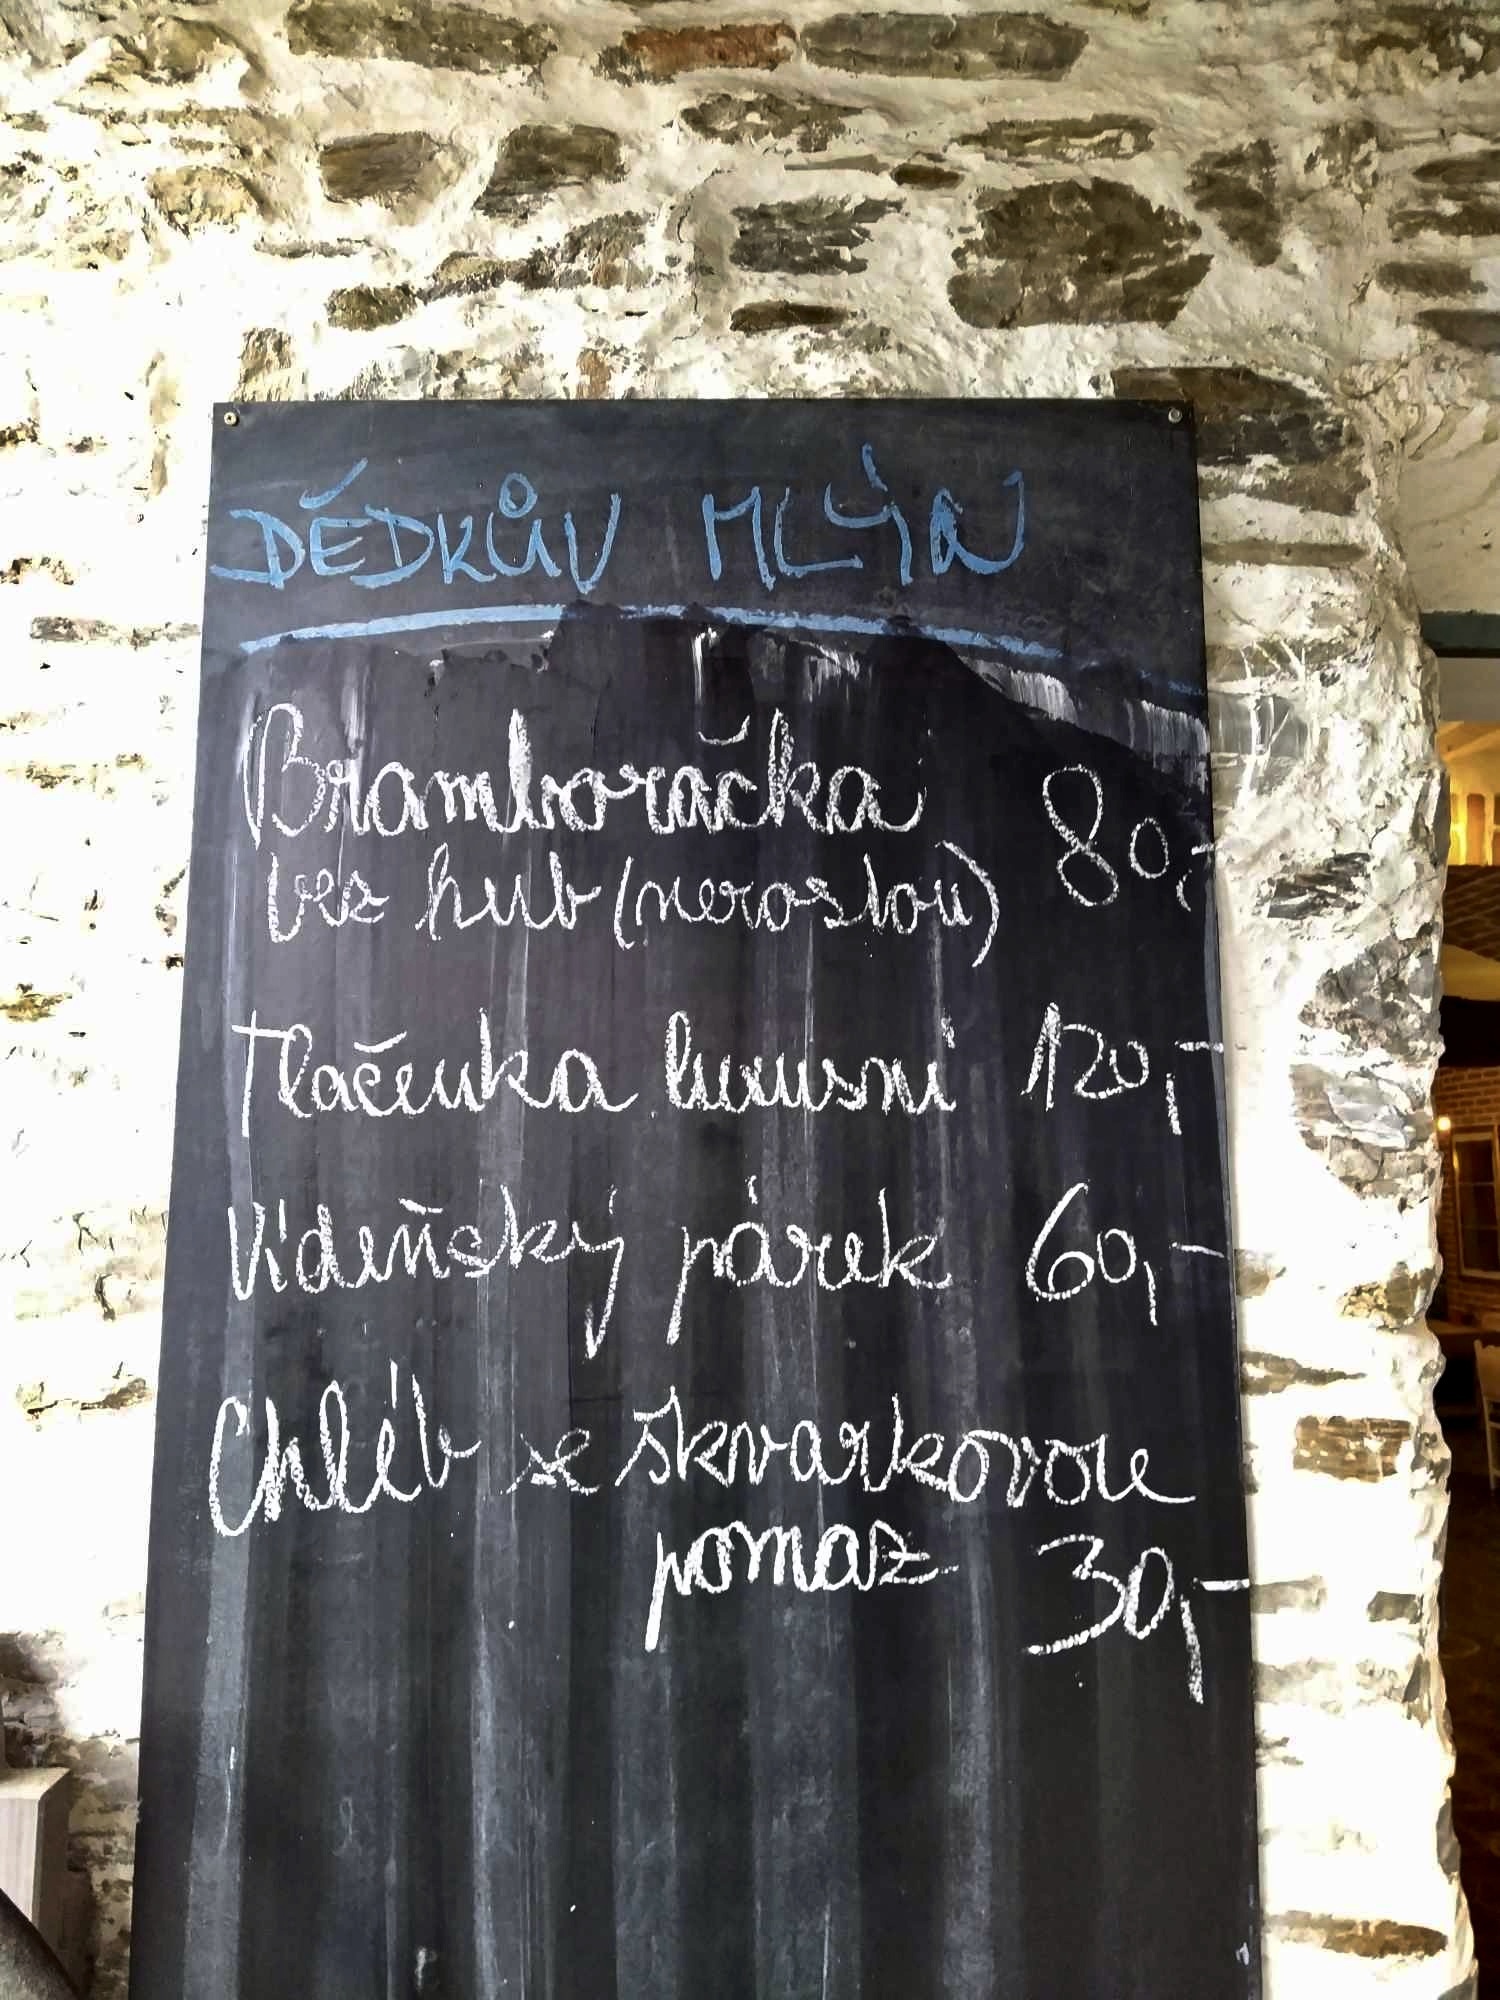 DĚDKŮV MLÝN
Bramboračka
bez hub (nerostou) 80,-
Tlačenka luxusní 120,-
Vídeňský párek 60,-
Chléb se škvarkovou
pomaz 30,-